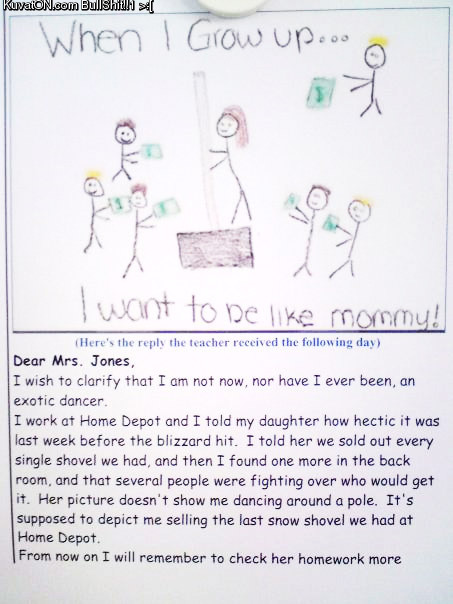 KuvatON.com BullShit!1 >:[
When I Grow up...
I want to be like mommy!
(Here's the reply the teacher received the following day)
Dear Mrs. Jones,
I wish to clarify that I am not now, nor have I ever been, an
exotic dancer.
I work at Home Depot and I told my daughter how hectic it was
last week before the blizzard hit. I told her we sold out every
single shovel we had, and then I found one more in the back
room, and that several people were fighting over who would get
it. Her picture doesn't show me dancing around a pole. It's
supposed to depict me selling the last snow shovel we had at
Home Depot.
From now on I will remember to check her homework more